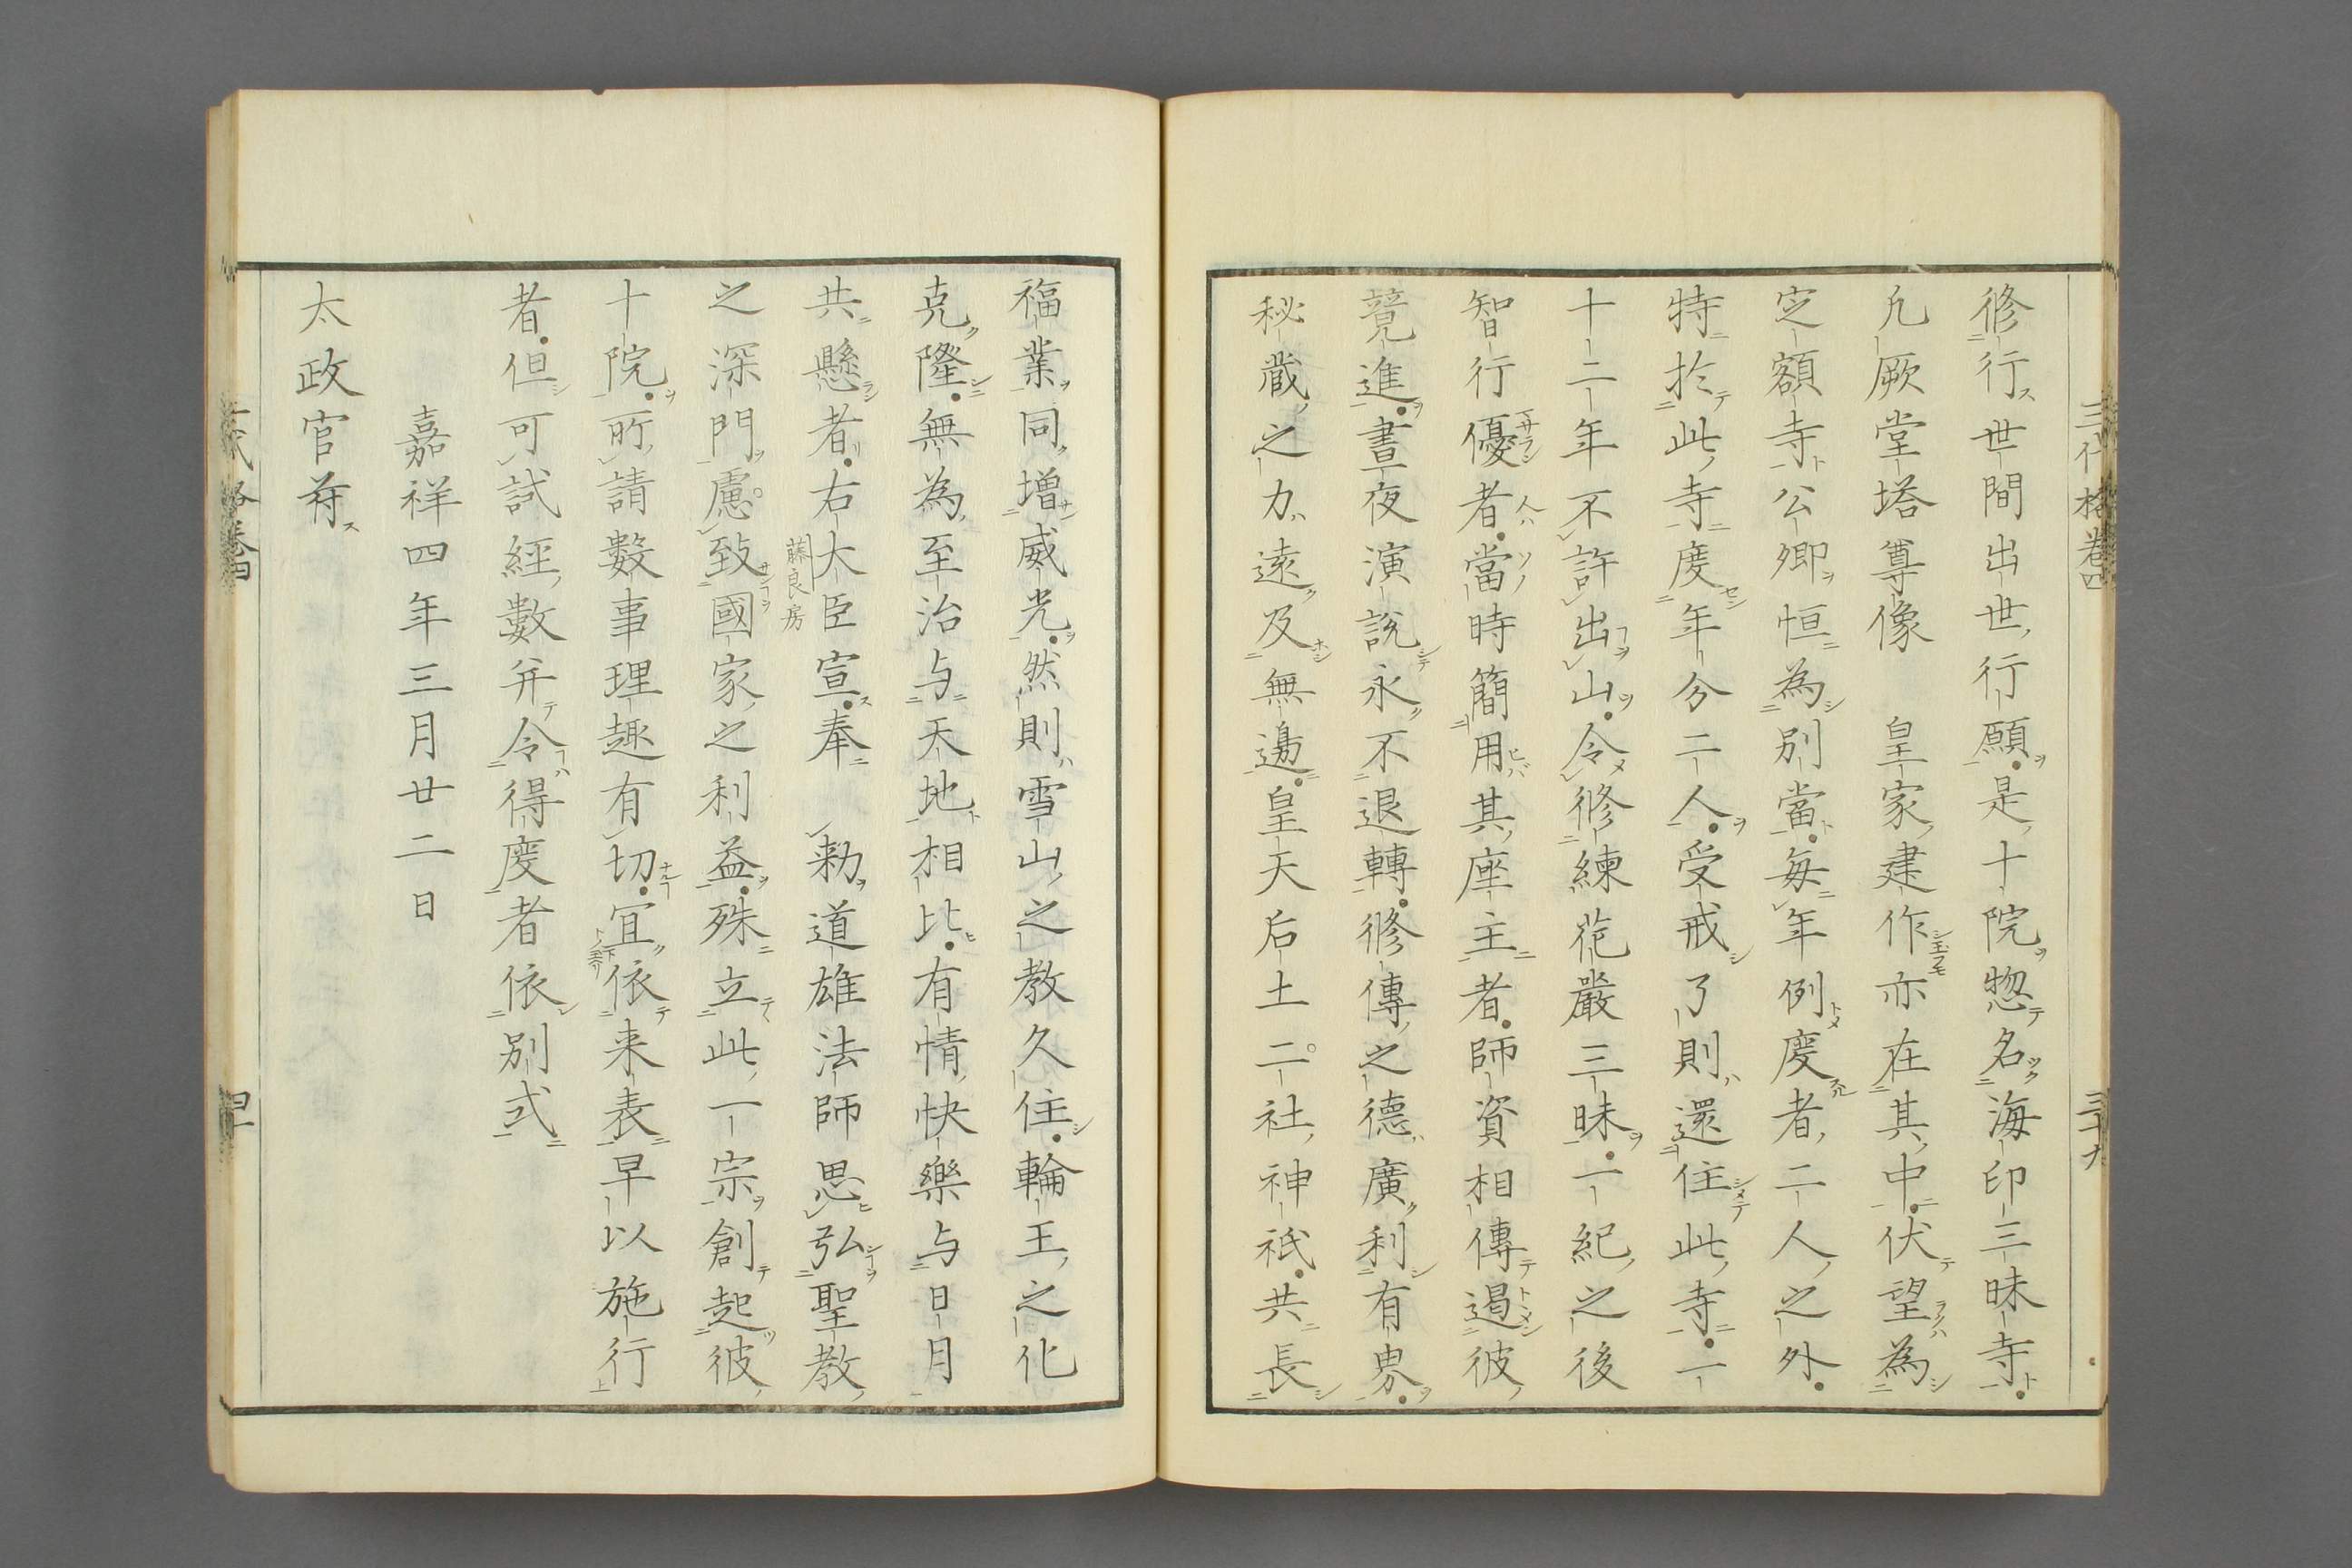 三代格卷四
三十九
修行世間出世行願是十院惣名海印三昧寺
凡厥堂塔尊像　皇家建作亦在其中伏望為
定額寺公卿恒為別當每年例度者二人之外
特於此寺度年分二人受戒了則還住此寺一
十二年不許出山令修練花嚴三昧一紀之後
智行優者當時簡用其座主者師資相傳遏彼
競進晝夜演說永不退轉修傳之德廣利有界
秘蔵之力遠及無邊皇天后土二社神祇共長
福業同增威光然則雪山之教久住輪王之化
克隆無為至治与天地相比有情快樂与日月
共懸者右大臣宣奉　勅道雄法師思弘聖教
藤良房
之深門慮致國家之利益殊立此一宗創起彼
十院所請數事理趣有切宜依来表早以施行
者但可試經數并令得度者依別式
嘉祥四年三月廿二日
太政官符